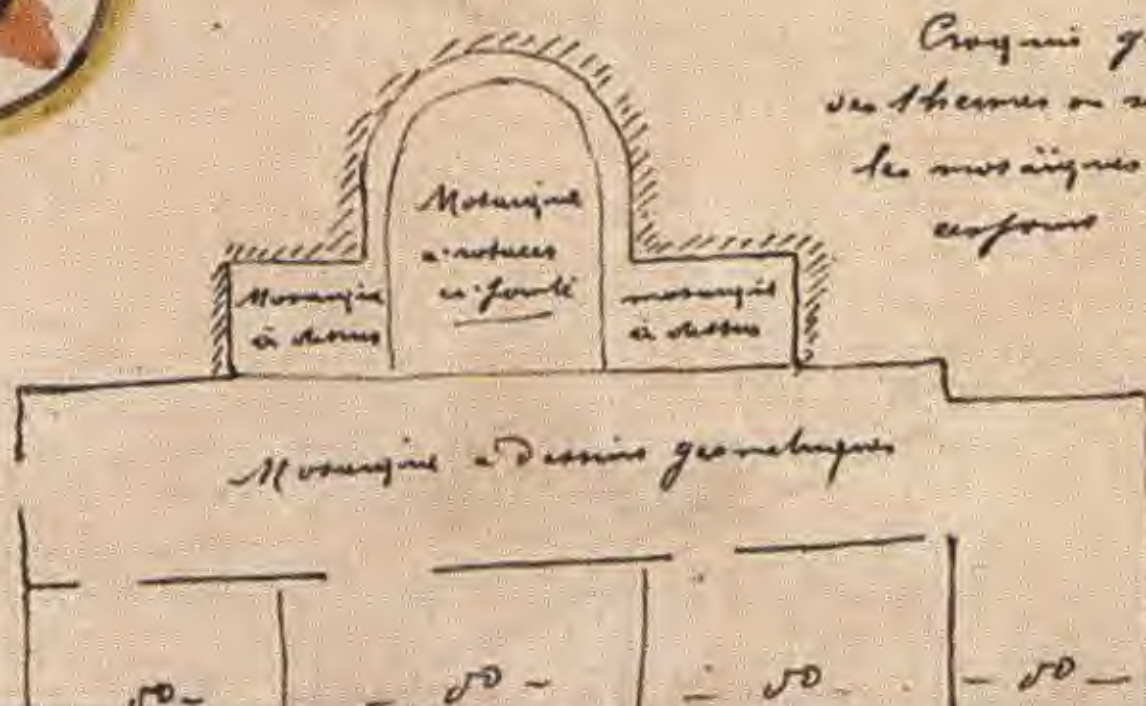 Croquis g
des thermes ou
les mosaïques
Mosaïque
a rosaces
ci-joint
Mosaïque
à dessins
mosaïque
à dessins
Mosaïque a Dessins geometriques
do -
- do -
- do
- do -